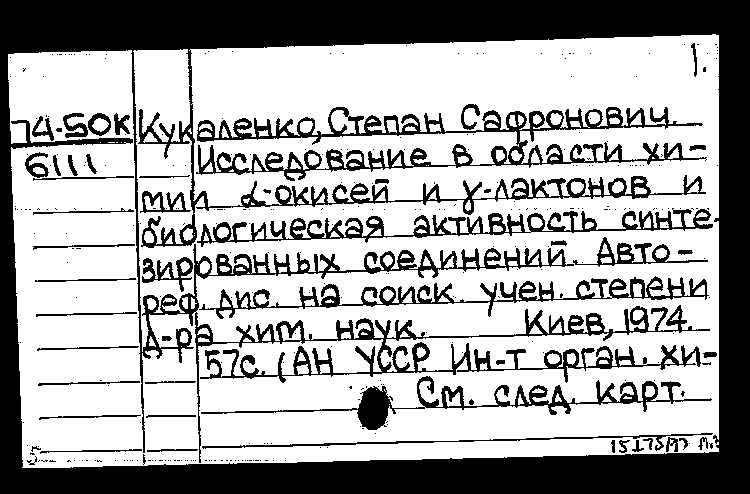 1.
74-50К Кукаленко, Степан Сафронович.
6111 Исследование в области хи-
мии α-окисей и γ-лактонов и
биологическая активность синте-
зированных соединений. Авто-
реф. дис. на соиск. учен. степени
д-ра хим. наук. Киев, 1974.
57с. (АН УССР. Ин-т орган. хи-
См. след. карт.
5